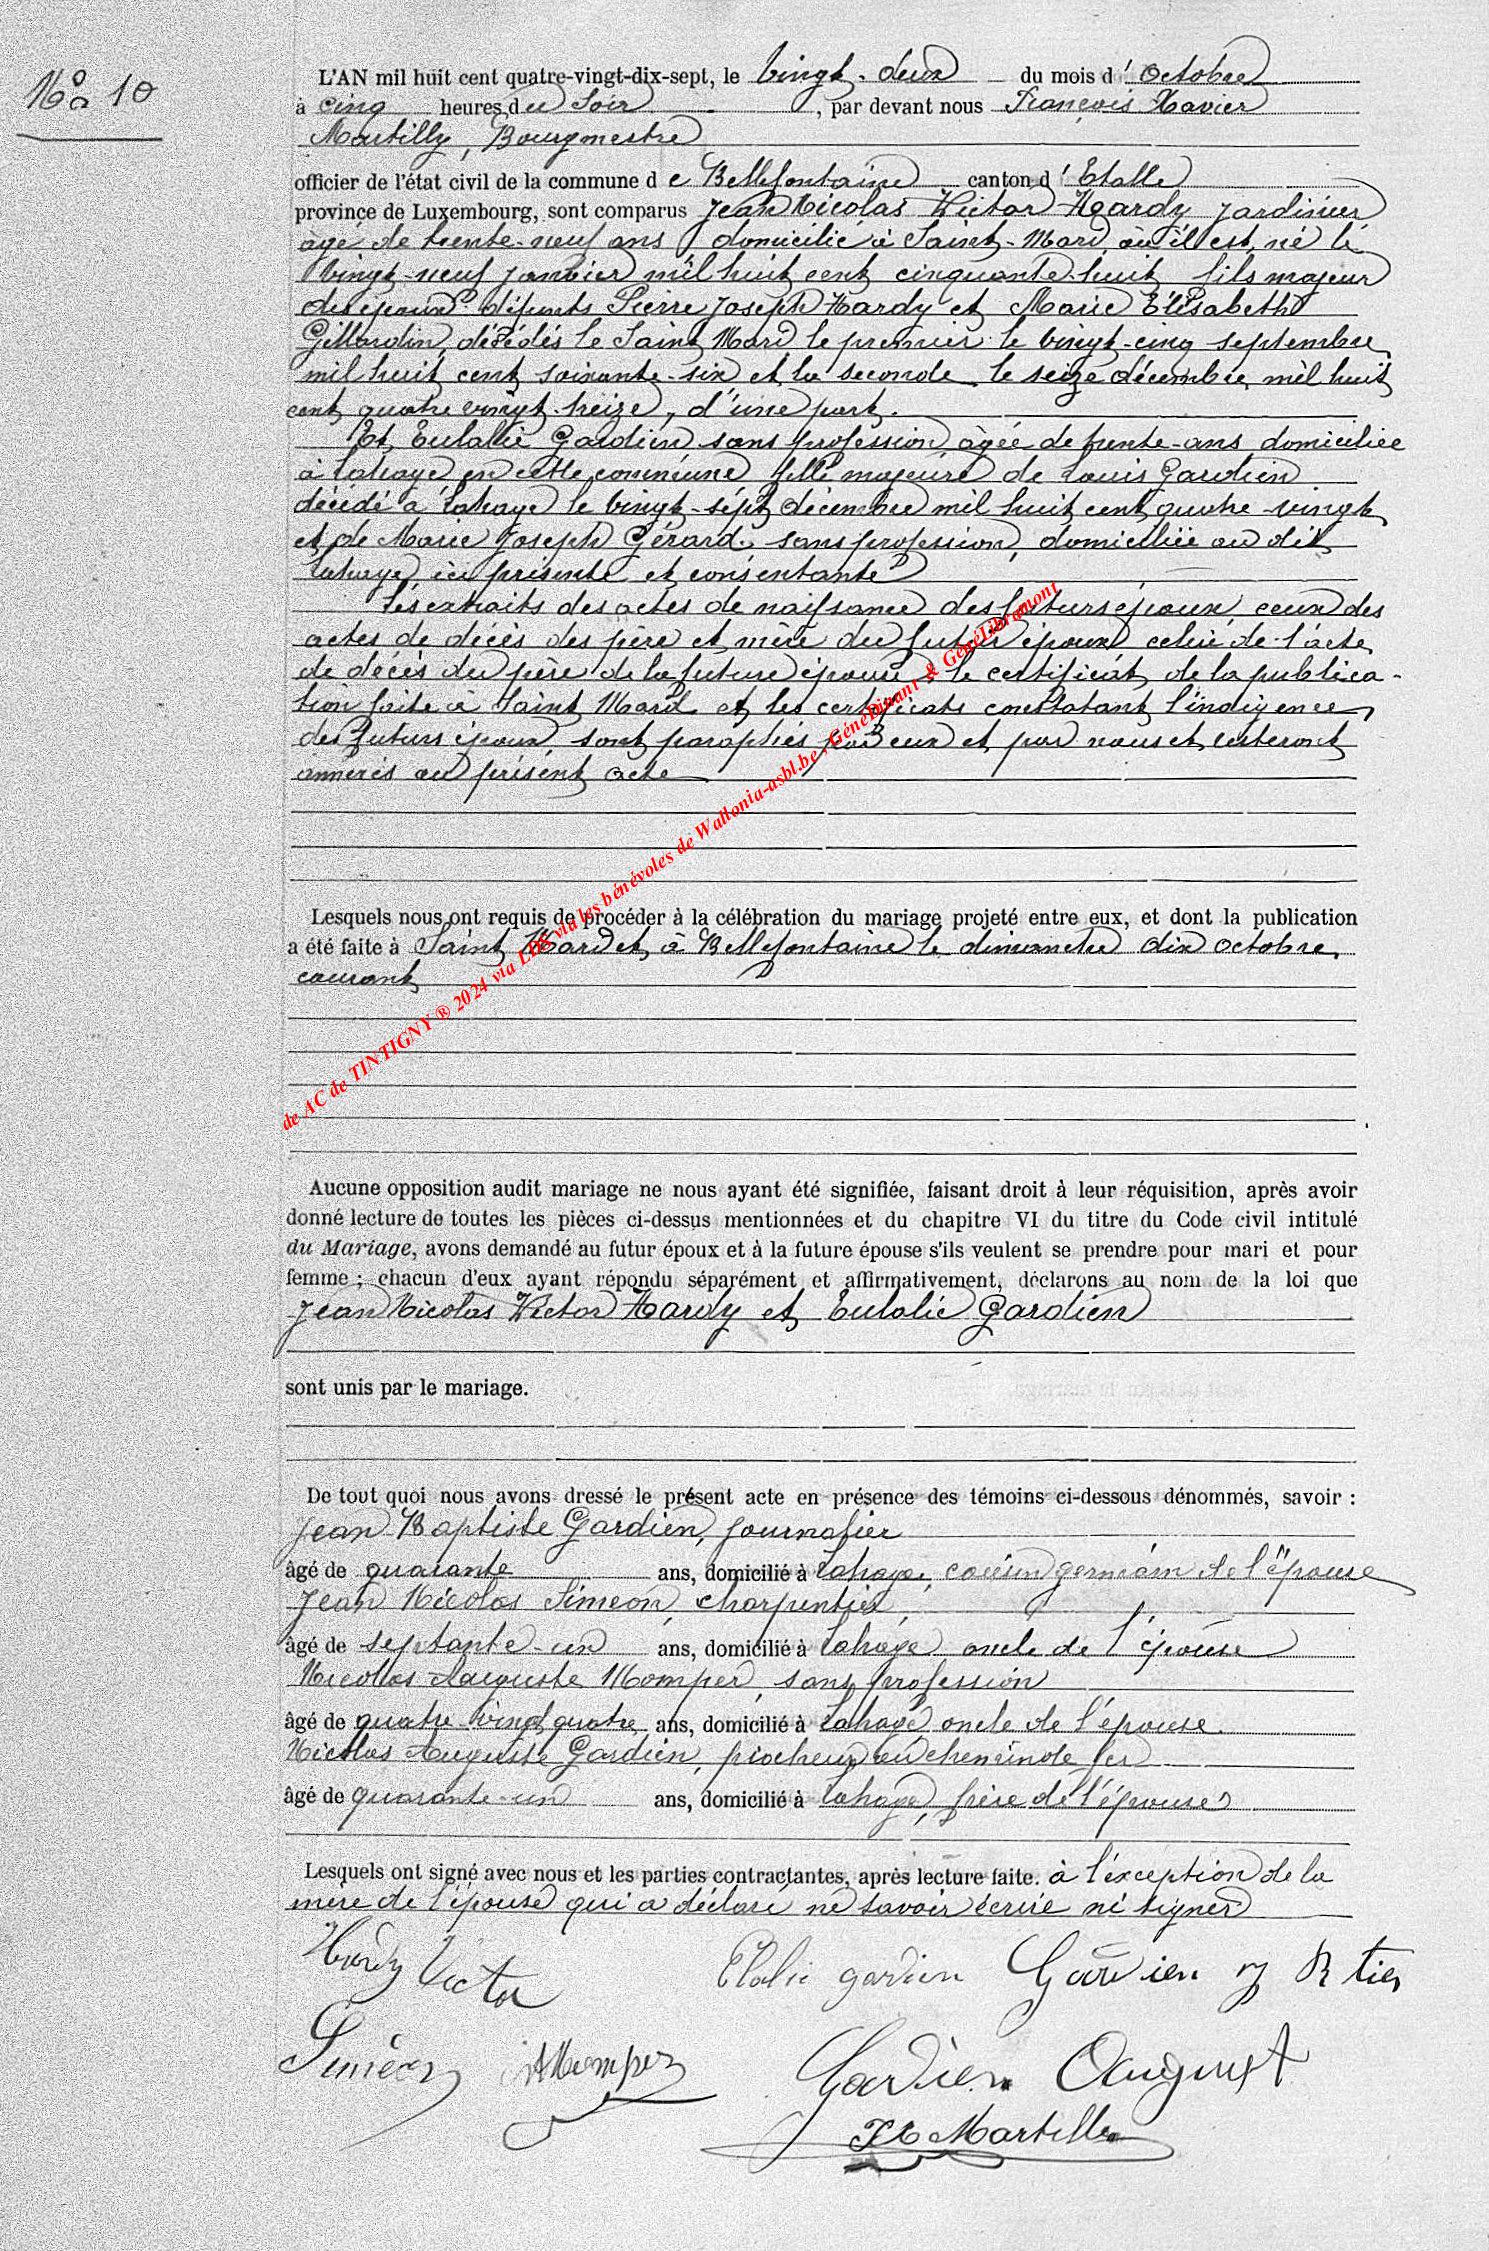 No 10
L'AN mil huit cent quatre-vingt-dix-sept, le vingt-deux du mois d'Octobre
à cinq heures du soir, par devant nous François Xavier
Martilly, Bourgmestre
officier de l'état civil de la commune de Bellefontaine canton d'Etalle
province de Luxembourg, sont comparus Jean Nicolas Victor Hardy jardinier
âgé de trente-neuf ans domicilié à Saint-Mard où il est né le
vingt-neuf janvier mil huit cent cinquante-huit fils majeur
des époux défunts Pierre Joseph Hardy et Marie Elisabeth
Gillardin, décédés le Saint Mard, le premier le vingt-cinq septembre
mil huit cent soixante-six et la seconde le seize décembre mil huit
cent quatre vingt-treize, d'une part.
Et Eulalie Gardien sans profession âgée de trente-ans domiciliée
à Lahage en cette commune fille majeure de Louis Gardien
décédé à Lahage le vingt-sept décembre mil huit cent quatre-vingt
et de Marie Joseph Gérard sans profession, domiciliée au dit
Lahage ici présente et consentante
Les extraits des actes de naissance des futurs époux, ceux des
actes de décès des père et mère du futur époux, celui de l'acte
de décès du père de la future épouse, le certificat de la publica-
tion faite à Saint Mard et les certificats constatant l'indigence
des futurs époux, sont paraphés par eux et par nous et resteront
annexés au présent acte
Lesquels nous ont requis de procéder à la célébration du mariage projeté entre eux, et dont la publication
a été faite à Saint Mard et à Bellefontaine le dimanche dix octobre,
courant
de AC de TINTIGNY ® 2024 via LDS via les bénévoles de Wallonia-asbl.be, GénéDinant & GénéLibramont
Aucune opposition audit mariage ne nous ayant été signifiée, faisant droit à leur réquisition, après avoir
donné lecture de toutes les pièces ci-dessus mentionnées et du chapitre VI du titre du Code civil intitulé
du Mariage, avons demandé au futur époux et à la future épouse s'ils veulent se prendre pour mari et pour
femme ; chacun d'eux ayant répondu séparément et affirmativement, déclarons au nom de la loi que
Jean Nicolas Victor Hardy et Eulalie Gardien
sont unis par le mariage.
De tout quoi nous avons dressé le présent acte en présence des témoins ci-dessous dénommés, savoir :
Jean Baptiste Gardien, journalier
âgé de quarante ans, domicilié à Lahage, cousin germain de l'épouse
Jean Nicolas Simeon, charpentier,
âgé de septante-un ans, domicilié à Lahage oncle de l'épouse
Nicolas Auguste Momper, sans profession
âgé de quatre vingt quatre ans, domicilié à Lahage, oncle de l'épouse.
Nicolas Auguste Gardien, piocheur au chemin de fer
âgé de quarante-un ans, domicilié à Lahage, frère de l'épouse
Lesquels ont signé avec nous et les parties contractantes, après lecture faite. à l'exception de la
mère de l'épouse qui a déclaré ne savoir écrire ni signer
Hardy Victor Elalie gardien Gardien J B tier
Siméon Momper Gardien August
FX Martilly